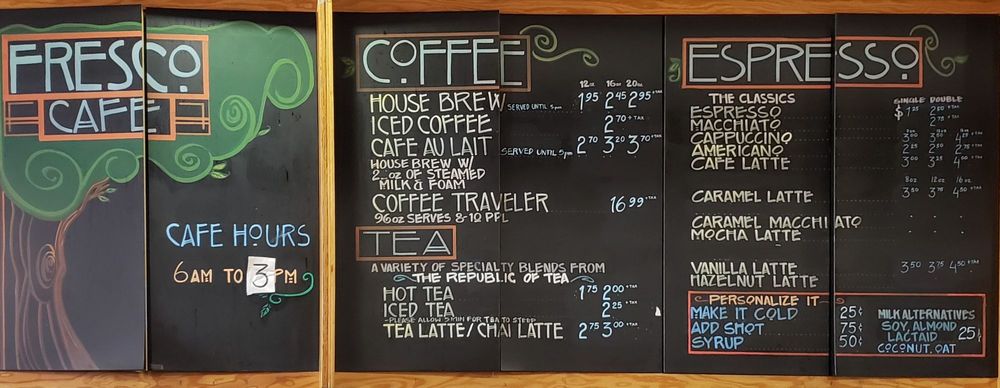 FRESCO
CAFE
CAFE HOURS
6AM TO 3 PM
COFFEE
12oz 16oz 20oz
HOUSE BREW SERVED UNTIL 5pm 1.95 2.45 2.95 +TAX
ICED COFFEE 2.70 +TAX
CAFE AU LAIT SERVED UNTIL 5pm 2.70 3.20 3.70 +TAX
HOUSE BREW W/
2 oz OF STEAMED
MILK & FOAM
COFFEE TRAVELER 16.99 +TAX
96oz SERVES 8-10 PPL
TEA
A VARIETY OF SPECIALTY BLENDS FROM
THE REPUBLIC OF TEA
HOT TEA 1.75 2.00 +TAX
ICED TEA 2.25 +TAX
-PLEASE ALLOW 5 MIN FOR TEA TO STEEP
TEA LATTE/CHAI LATTE 2.75 3.00 +TAX
ESPRESSO
THE CLASSICS SINGLE DOUBLE
ESPRESSO
MACCHIATO
CAPPUCCINO
AMERICANO
CAFE LATTE 3.00 3.25 4.00 +TAX
8oz 12oz 16oz
CARAMEL LATTE 3.50 3.75 4.50 +TAX
CARAMEL MACCHIATO
MOCHA LATTE
VANILLA LATTE 3.50 3.75 4.50 +TAX
HAZELNUT LATTE
PERSONALIZE IT
MAKE IT COLD 25¢
ADD SHOT 75¢
SYRUP 50¢
MILK ALTERNATIVES
SOY, ALMOND
LACTAID 25¢
COCONUT, OAT